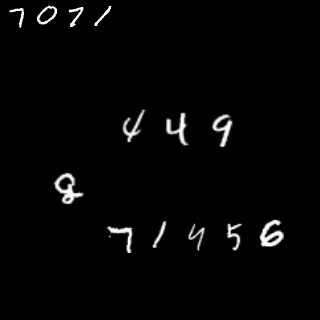 7071
449
8
71456